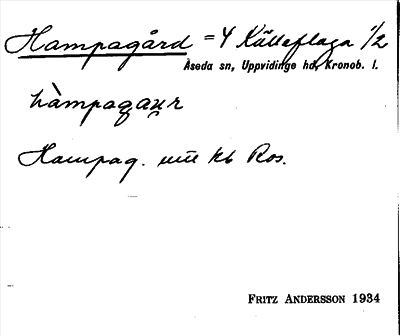 Hampagård = 4 Källeflaga 1/2
Åseda sn, Uppvidinge hd, Kronob. l.
hàmpagau̯r
Hampag. uu kb Ros.
FRITZ ANDERSSON 1934